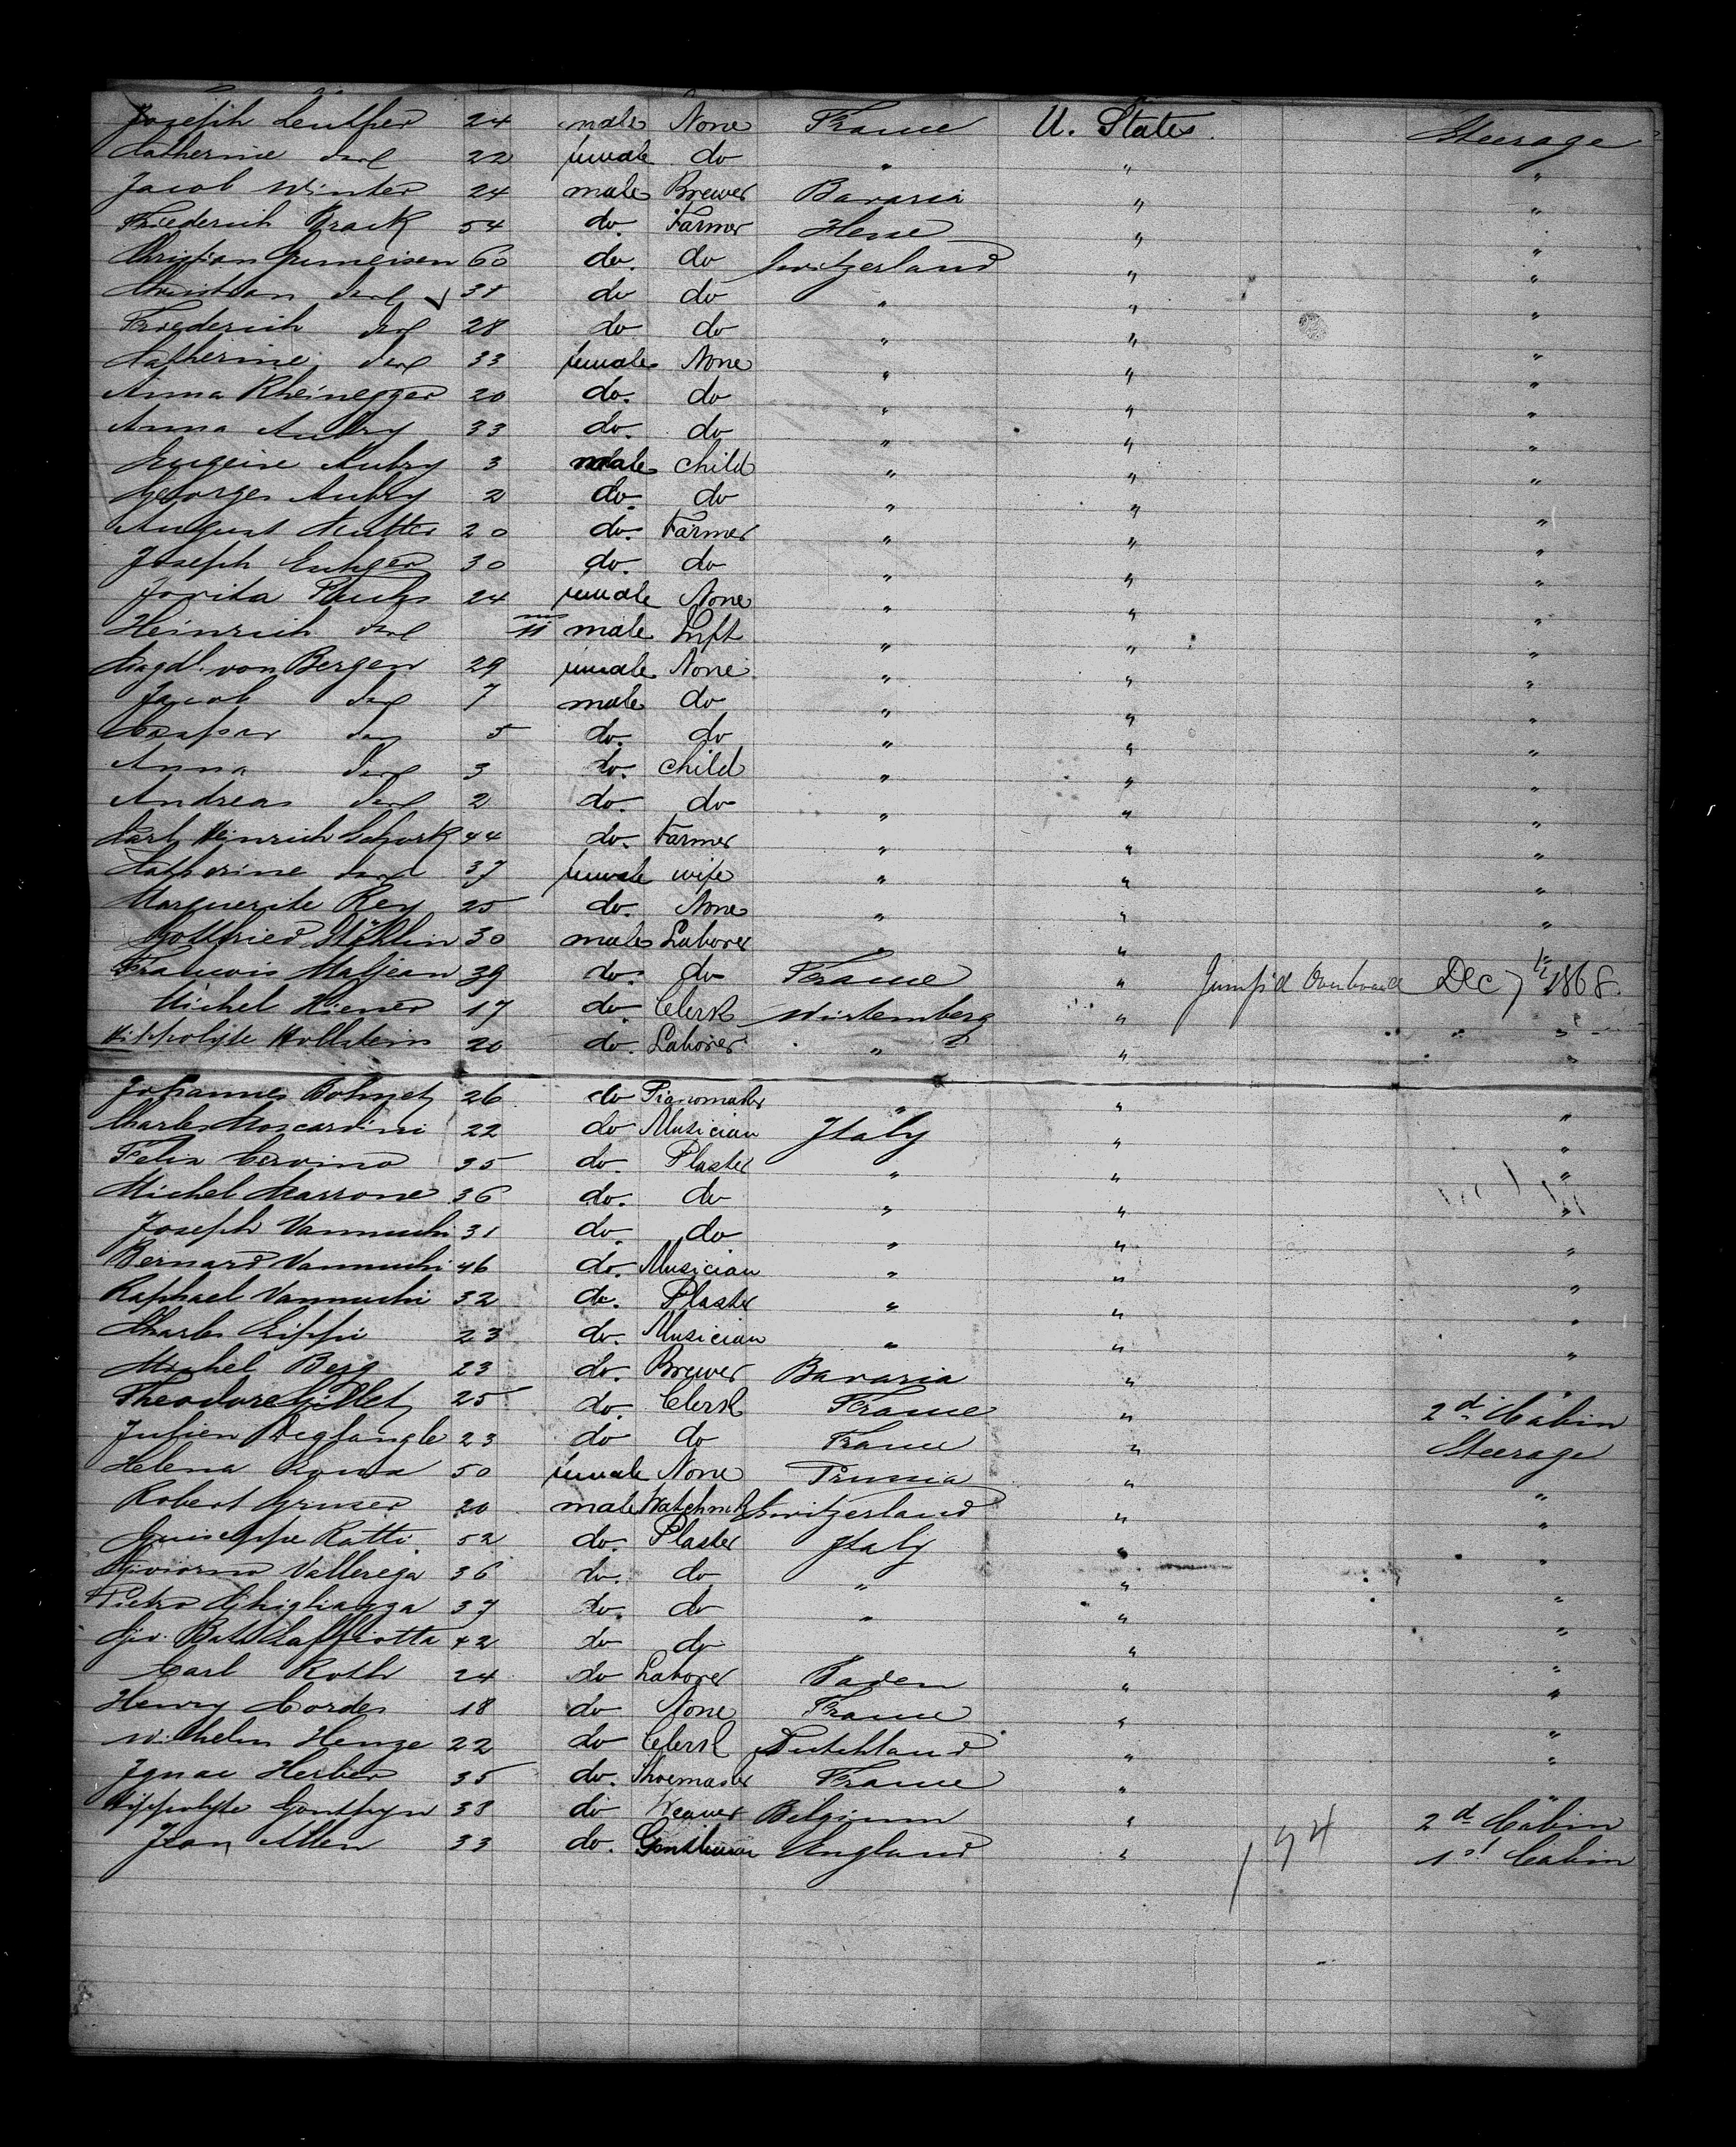 Joseph Leuther 24 male None France U. States Steerage
Catherine do 22 female do " " "
Jacob Winter 24 male Brewer Bavaria " "
Friederich Brack 54 do. Farmer Hesse " "
Christian Gumeisen 60 do. do Switzerland " "
Christian do 31 do do " " "
Friederich do 28 do do " " "
Catherine do 33 female None " " "
Anna Rheinegger 20 do. do " " "
Anna Aubry 33 do. do " " "
Eugeise Aubry 3 male child " " "
Georges Aubry 2 do. do " " "
August Nutter 20 do. Farmer " " "
Joseph 30 do. do " " "
24 female None " " "
Heinrich 11 male Inft " " "
Magdl. von Bergen 29 female None " " "
Jacob 7 male do " " "
Caspar 5 do. do " " "
Anna 3 do. child " " "
Andreas 2 do. do " " "
Carl Heinrich Schork 44 do. Farmer " " "
Catherine 37 female wife " " "
Marguerite Rey 25 do. None " " "
Gottfried Stöhlin 30 male Laborer " "
Francois Maljean 39 do. do France " Jump'd Overboard Dec 7th 1868.
Michel Hiener 17 do. Clerk Wirtemberg " " "
Hippolyte Hollstein 20 do. Laborer " " "
Johannes Bohnet 26 do Pianomaker " " "
Charles Moscardini 22 do Musician Italy " "
Felix Cervino 35 do. Plaster " " "
Michel Marrone 36 do. do " " "
Joseph Vannuchi 31 do. do " " "
Bernard Vannuchi 46 do. Musician " " "
Raphael Vannuchi 32 do. Plaster " " "
Charles Lippi 23 do. Musician " " "
Michel Berg 23 do. Brewer Bavaria " "
Theodore Gillet 25 do. Clerk France " 2d Cabin
Julien Deglangle 23 do do France " Steerage
Helena 50 female None Prussia " "
Robert Gruser 20 male Watchmk Switzerland " "
Guiseppe Ratti. 52 do. Plaster Italy " "
Vallerega 36 do. do " " "
Pietro Ghigliazza 37 do. do " " "
Gio. Batt Laffiotta 42 do do " "
Carl Roth 24 do Laborer Baden " "
Henry Cordes 18 do None France " "
Wilhelm Henze 22 do Clerk Dutchland " "
Ignac Herber 35 do. Shoemaker France " "
Hippolyte Gonthyn 38 do Weaver Belgium " 2d Cabin
Jean Allen 33 do. Gentleman England " 1st Cabin
194